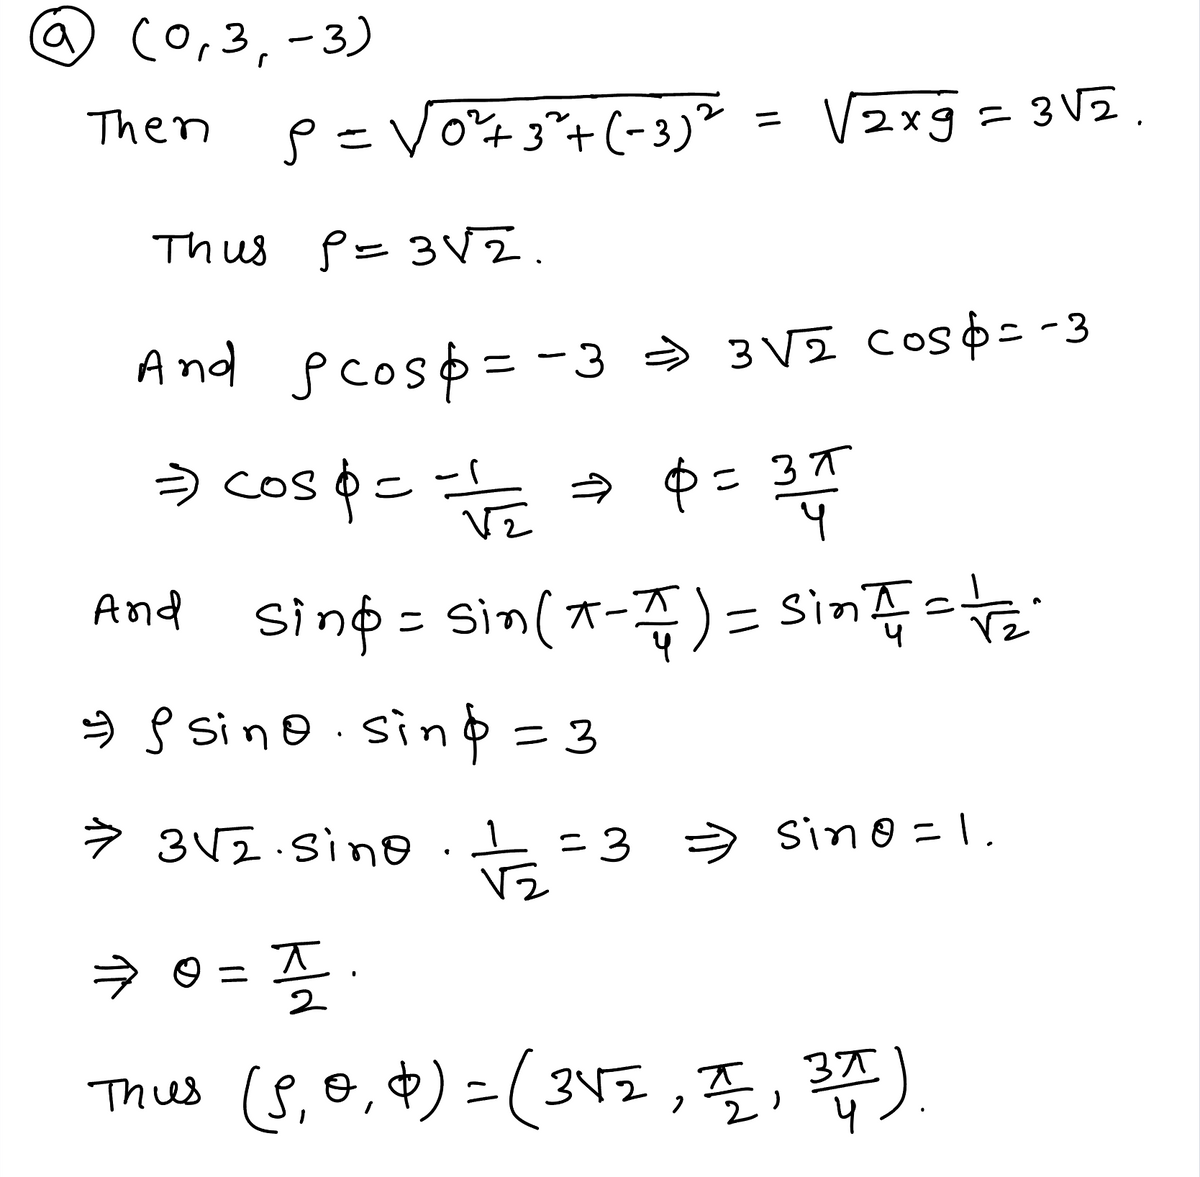 ⓐ (0,3,-3)
Then ρ = √0²+3²+(-3)² = √2×9 = 3√2.
Thus ρ = 3√2.
And ρcosφ = -3 ⇒ 3√2 cosφ = -3
⇒ cosφ = -1/√2 ⇒ φ = 3π/4
And sinφ = sin(π-π/4) = sinπ/4 = 1/√2.
⇒ ρ sinθ . sinφ = 3
⇒ 3√2 . sinθ . 1/√2 = 3 ⇒ sinθ = 1.
⇒ θ = π/2.
Thus (ρ, θ, φ) = (3√2, π/2, 3π/4).